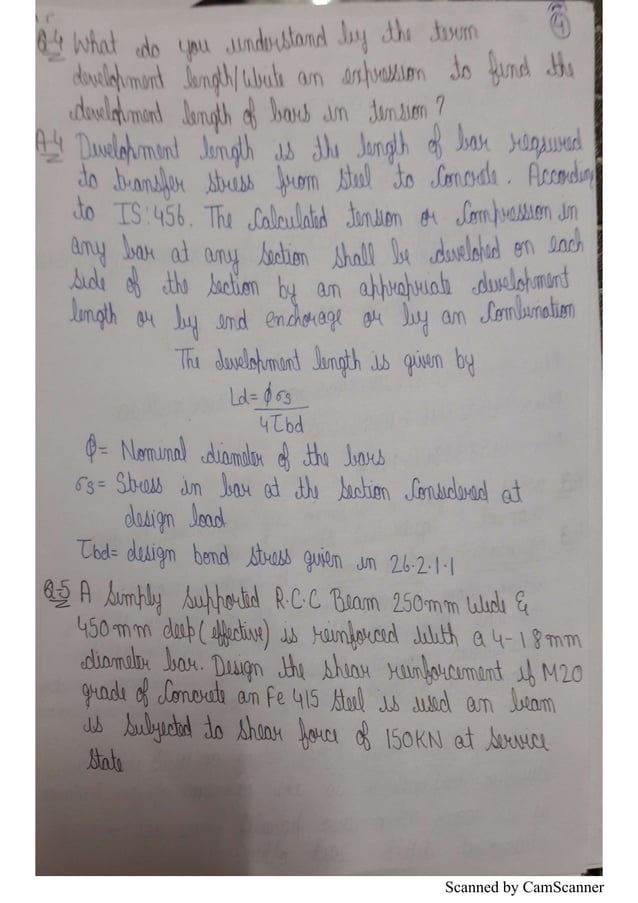 4
Q-4 What do you understand by the term
development length/Write an expression to find the
development length of bars in tension?
A-4 Development length is the length of bar required
to transfer stress from steel to Concrete. According
to IS:456. The Calculated tension or Compression in
any bar at any section shall be developed on each
side of the section by an appropriate development
length or by end enchorage or by an Combination
The development length is given by
Ld= ϕσs
4τbd
ϕ= Nominal diameter of the bars
σs= Stress in bar at the section Considered at
design load
τbd= design bond stress given in 26.2.1.1
Q-5 A Simply Supported R.C.C Beam 250mm Wide &
450mm deep (effective) is reinforced With a 4-18mm
diameter bar. Design the shear reinforcement if M20
grade of Concrete an Fe 415 Steel is used an beam
is Subjected to Shear force of 150KN at Service
State
Scanned by CamScanner